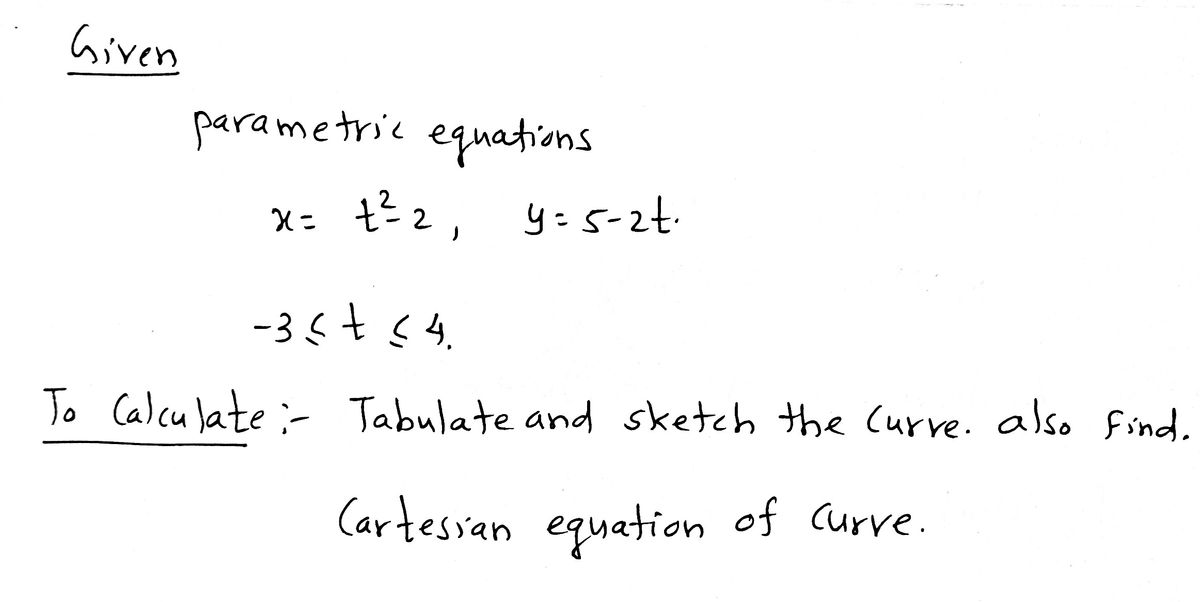 Given
parametric equations
x = t²-2, y = 5-2t.
-3 ≤ t ≤ 4.
To Calculate :- Tabulate and sketch the curve. also find.
Cartesian equation of curve.